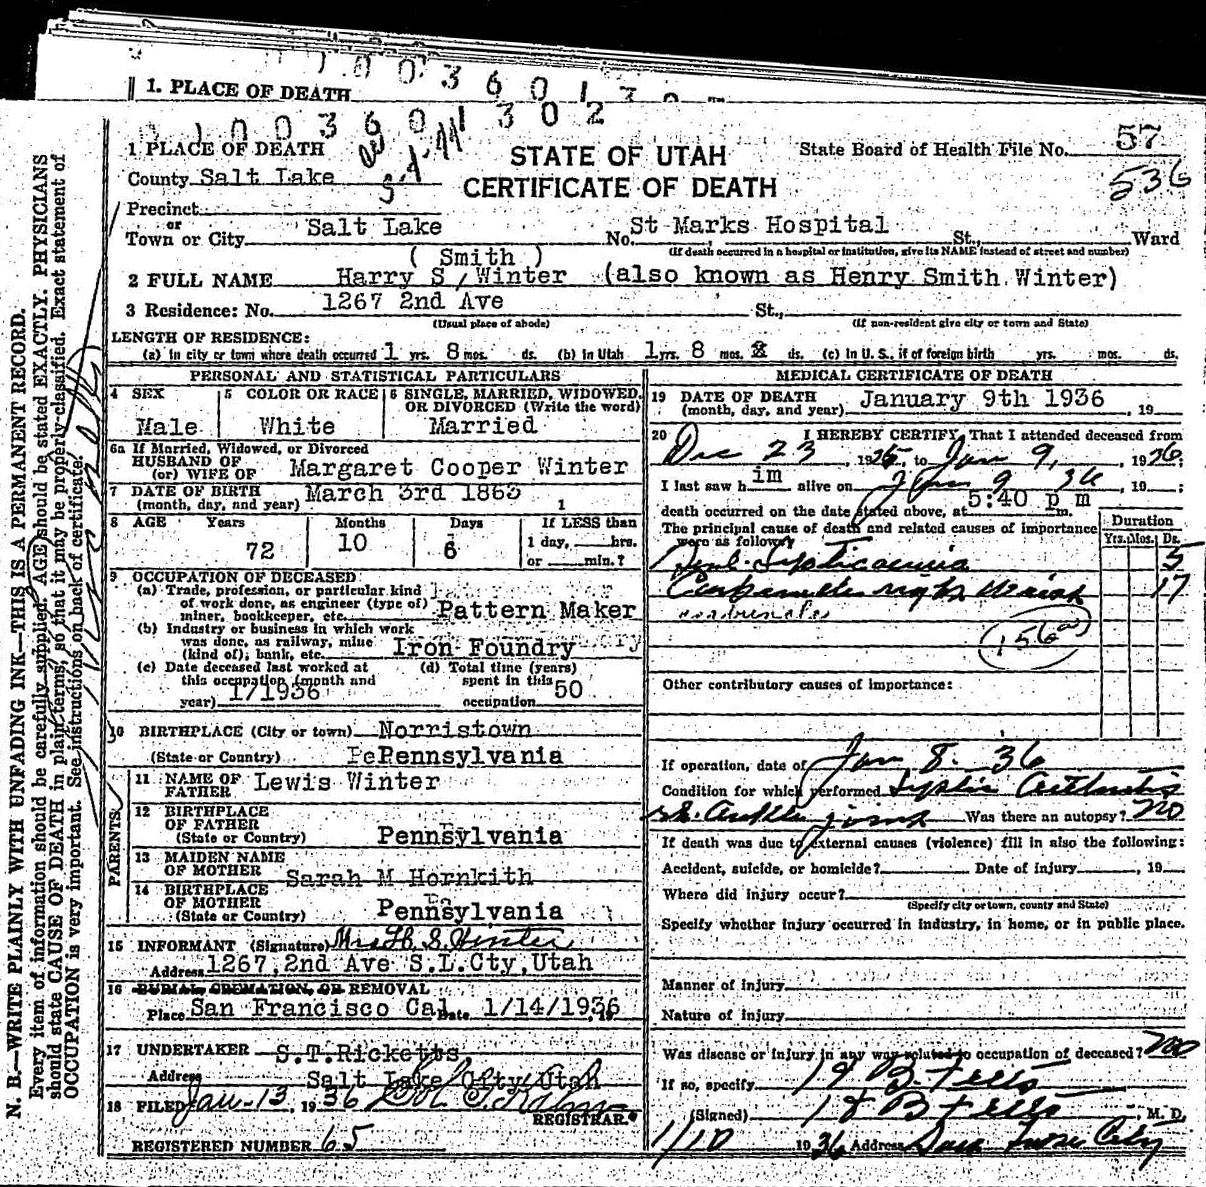 1. PLACE OF DEATH
1003601302
1 PLACE OF DEATH
STATE OF UTAH
State Board of Health File No. 57
County Salt Lake
CERTIFICATE OF DEATH
536
Precinct
or
Town or City Salt Lake No. St Marks Hospital St., Ward
(If death occurred in a hospital or institution, give its NAME instead of street and number)
( Smith )
2 FULL NAME Harry S, Winter (also known as Henry Smith Winter)
3 Residence: No. 1267 2nd Ave St.,
(Usual place of abode) (If non-resident give city or town and State)
LENGTH OF RESIDENCE:
(a) in city or town where death occurred 1 yrs. 8 mos. ds. (b) in Utah 1 yrs. 8 mos. ds. (c) In U. S., if of foreign birth yrs. mos. ds.
PERSONAL AND STATISTICAL PARTICULARS
4 SEX Male
5 COLOR OR RACE White
6 SINGLE, MARRIED, WIDOWED, OR DIVORCED (Write the word) Married
6a If Married, Widowed, or Divorced
HUSBAND OF
(or) WIFE OF Margaret Cooper Winter
7 DATE OF BIRTH March 3rd 1863
(month, day, and year) 1
8 AGE Years Months Days If LESS than
72 10 6 1 day, hrs.
or min.?
9 OCCUPATION OF DECEASED
(a) Trade, profession, or particular kind
of work done, as engineer (type of)
miner, bookkeeper, etc. Pattern Maker
(b) Industry or business in which work
was done, as railway, mine
(kind of), bank, etc. Iron Foundry
(c) Date deceased last worked at
this occupation (month and
year) 1/1936
(d) Total time (years)
spent in this
occupation 50
10 BIRTHPLACE (City or town) Norristown
(State or Country) Pennsylvania
PARENTS
11 NAME OF
FATHER Lewis Winter
12 BIRTHPLACE
OF FATHER
(State or Country) Pennsylvania
13 MAIDEN NAME
OF MOTHER Sarah M Hornkith
14 BIRTHPLACE
OF MOTHER
(State or Country) Pennsylvania
15 INFORMANT (Signature) Mrs H. S. Winter
Address 1267, 2nd Ave S.L.Cty, Utah
16 BURIAL, CREMATION, OR REMOVAL
Place San Francisco Cal. Date 1/14/1936, 19
17 UNDERTAKER S.T.Ricketts,
Address Salt Lake City Utah
18 FILED Jan-13, 1936
REGISTRAR.
REGISTERED NUMBER 65
MEDICAL CERTIFICATE OF DEATH
19 DATE OF DEATH January 9th 1936
(month, day, and year) , 19
20 I HEREBY CERTIFY, That I attended deceased from
Dec 23, 1935, to Jan 9, 1936;
I last saw him alive on Jan 9 36, 19 ;
death occurred on the date stated above, at 5:40 p m m.
The principal cause of death and related causes of importance
were as follows:
Duration
Yrs. Mos. Ds.
Septicaemia 5
right 17
carbuncle
(156a)
Other contributory causes of importance:
If operation, date of Jan 8. 36
Condition for which performed Septic Arthritis
rt. Ankle joint Was there an autopsy? no
If death was due to external causes (violence) fill in also the following:
Accident, suicide, or homicide? Date of injury , 19
Where did injury occur?
(Specify city or town, county and State)
Specify whether injury occurred in industry, in home, or in public place.
Manner of injury
Nature of injury
Was disease or injury in any way related to occupation of deceased? no
If so, specify
(Signed) , M. D.
1/10 1936 Address City
N. B.—WRITE PLAINLY WITH UNFADING INK—THIS IS A PERMANENT RECORD.
Every item of information should be carefully supplied. AGE should be stated EXACTLY. PHYSICIANS
should state CAUSE OF DEATH in plain terms, so that it may be properly classified. Exact statement of
OCCUPATION is very important. See instructions on back of certificate.